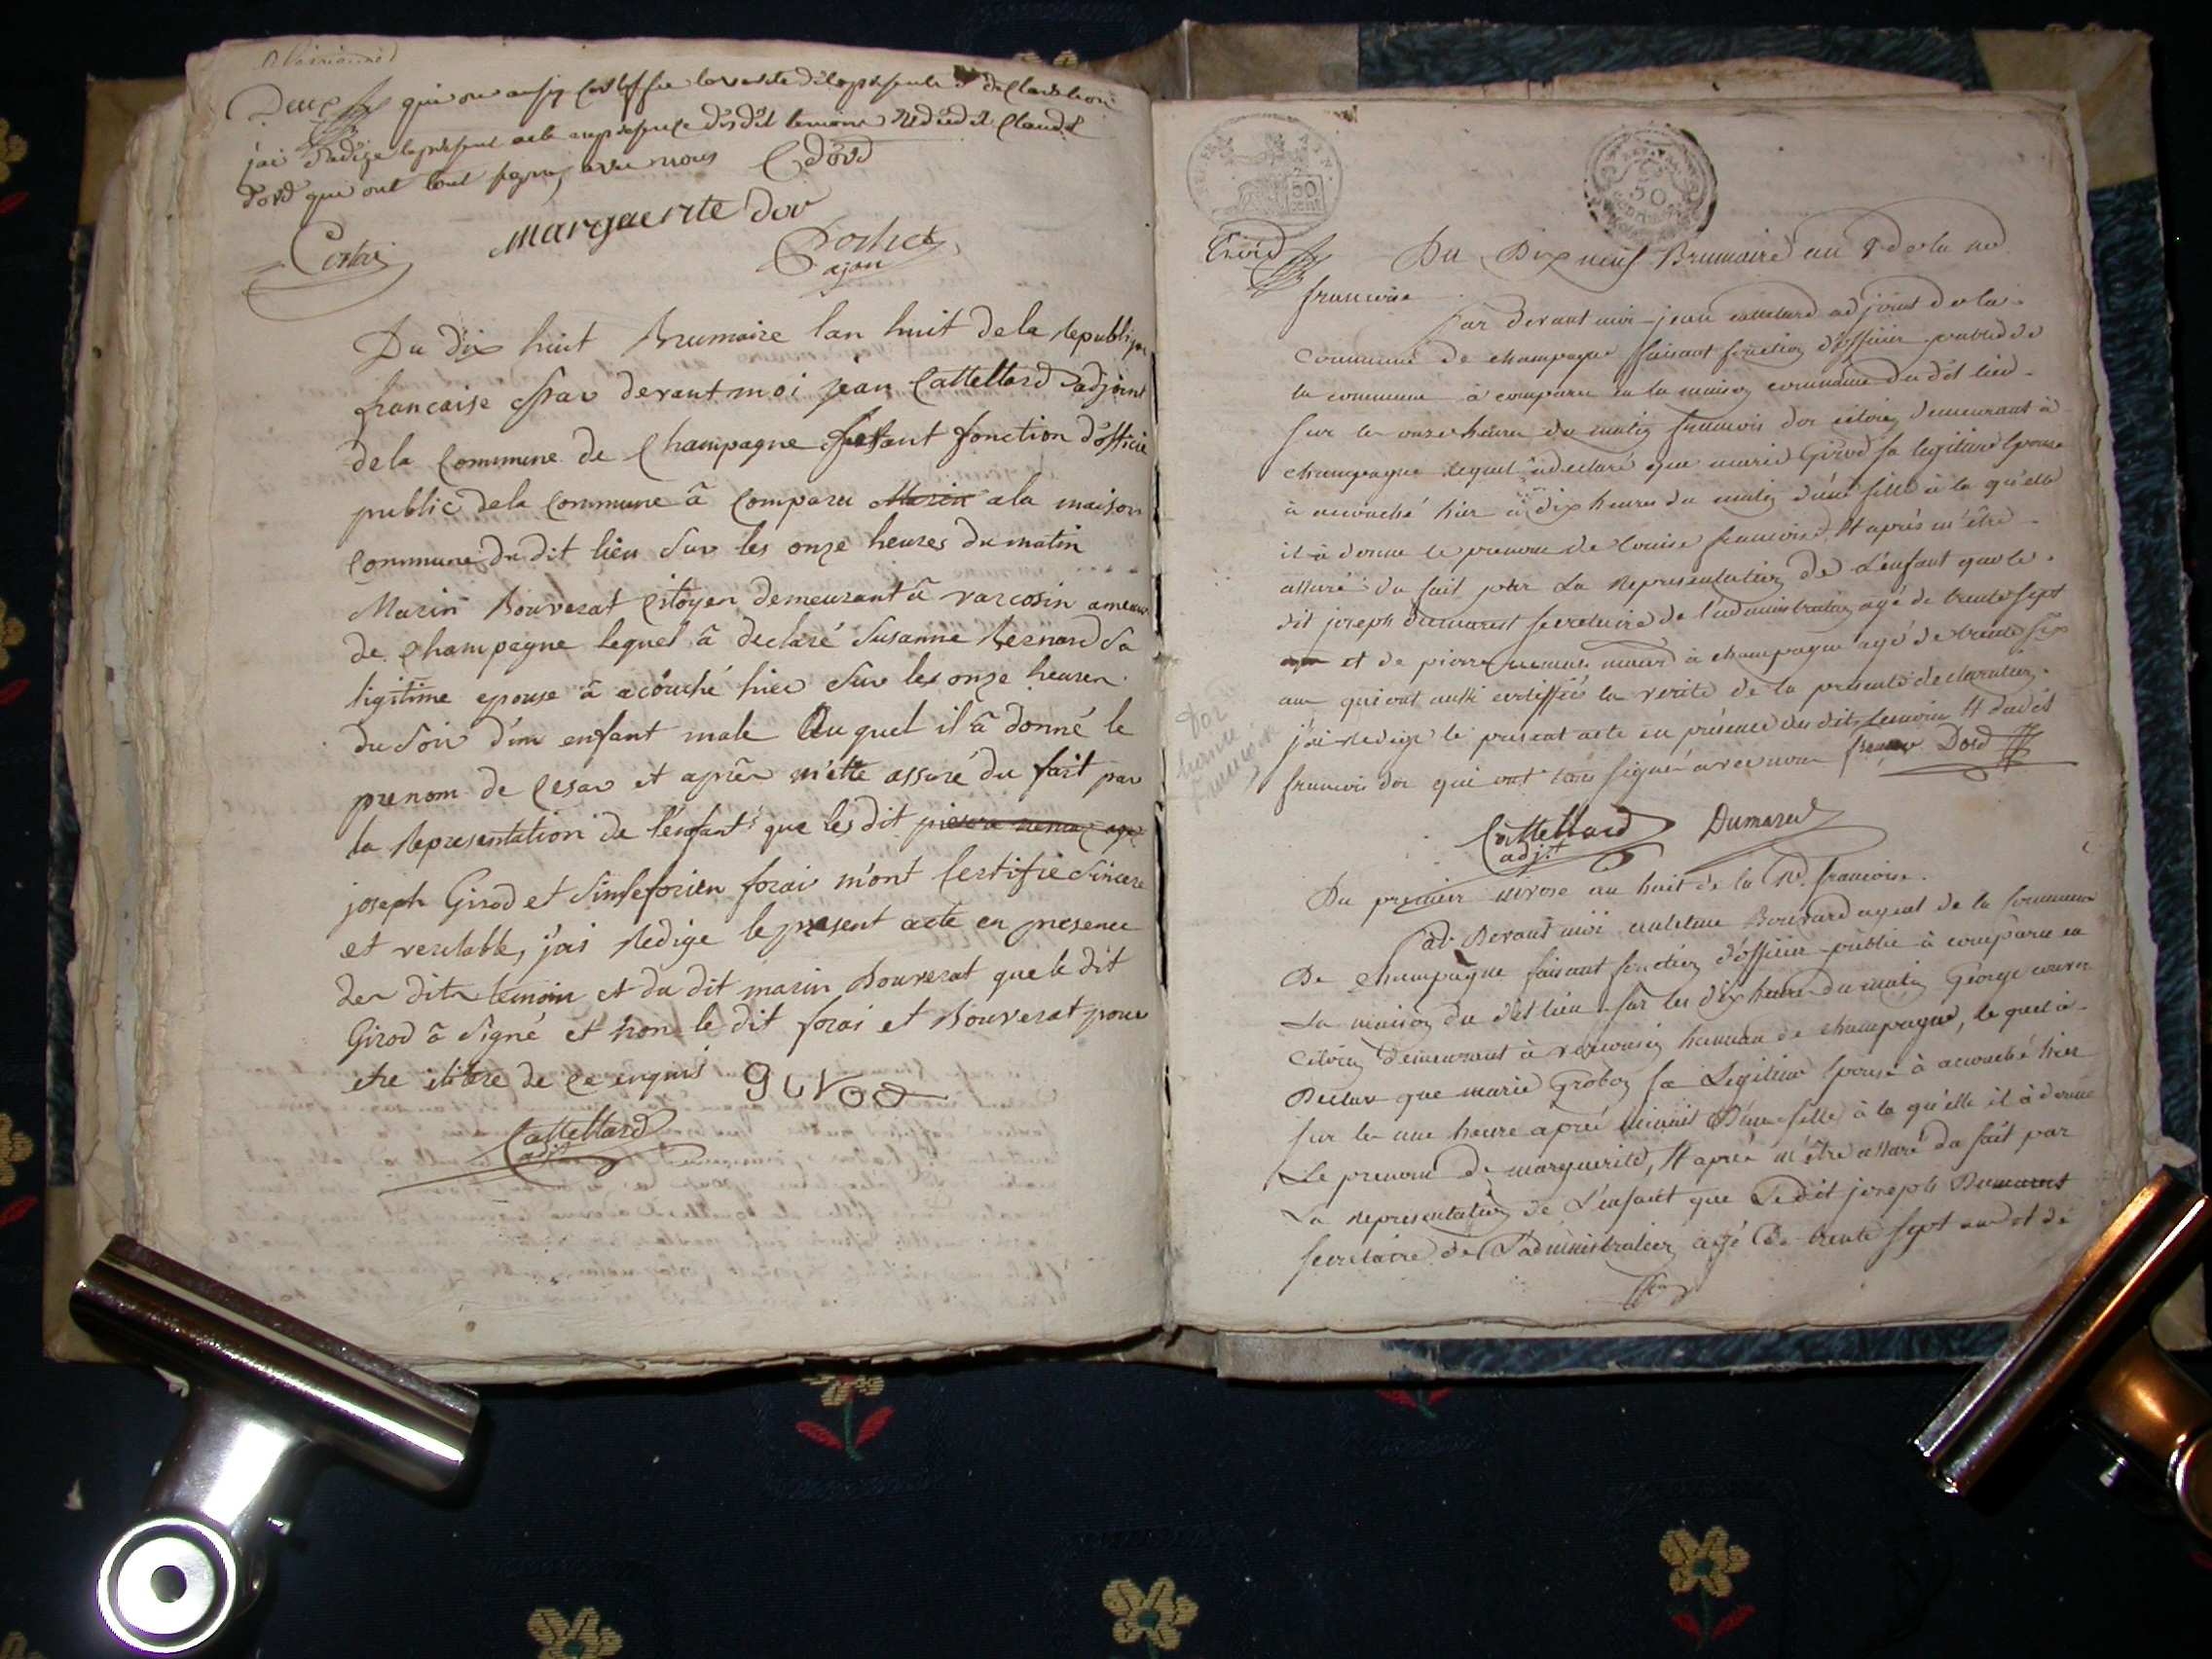 Deux
qui on ausy certiffie la verite de la presente declaration
j'ai redige le present acte en presence des dit temoins et du dit Claude
dord que ont tout signe, avec nous C dord
Marguerite dor
Du dix huit Brumaire lan huit de la Republique
francaise par devant moi jean Cattelland adjoint
de la Commune de Champagne fesant fonction d'officie
public de la Commune â Comparu Marin a la maison
Commune du dit lieu sur les onze heures du matin
Marin Bouverat Citoyen demeurant â varcosin ameau
de Champagne lequel â declaré Susanne Bernard Sa
ligitime epouse â acôuché hier sur les onze heures
du soir d'un enfant male Auquel il â donné le
prenom de Cesar et après m'etre assuré du fait par
la Representation de l'enfant que les dit pierre
joseph Girod et Sinseforien forai m'ont Certifie Sincere
et veritable, j'ai Redige le present acte en presence
des dits temoin et du dit marin Bouverat que le dit
Girod â Signé et non le dit forai et Bouverat pour
etre ilitere de ce enquis girod
Cattelland
adjt
50
50
Trois
Du Dix neuf Brumaire an 8 de la
francoise
Par devant moi jean cattelland adjoint de la
Commune de champagne faisant fonction d'officier public de
la commune à comparu en la maison commune du dit lieu
sur les onze heures du matin francois dor citoien demeurant à
champagne lequel à declaré que marie Girod sa legitime Epouse
à accouché hier à dix heures du matin d'une fille à la qu'elle
il à donné le prenom de louise francoise, Et après m'être
assuré du fait par La Representation de L'enfant que le
dit joseph dumarest secretaire de l'administration agé de trente sept
et de pierre à champagne agé de trente six
ans qui ont aussi certiffié la verité de la presente declaration
j'ai Redigé le present acte en présence des dits temoins Et du dit
francois dor qui ont tous signé avec nous Dord
Dor
Louise
Francoise
Cattelland Dumarest
adjt
Du premier nivose an huit de la Rd. francoise
Par Devant moi Bouvard agent de la Commune
De Champagne faisant fonction d'officier public à comparu en
La maison du dit lieu sur les dix heures du matin George
Citoien demeurant à hameau de champagne, le quel à
Declare que marie Grobon sa Legitime Epouse à accouché hier
sur les une heure après minuit D'une fille à la qu'elle il à donné
Le prenom de marguerite, Et après m'être assuré du fait par
La Representation de L'enfant que Ledit joseph Dumarest
secretaire de L'administration agé de trente sept ans et de